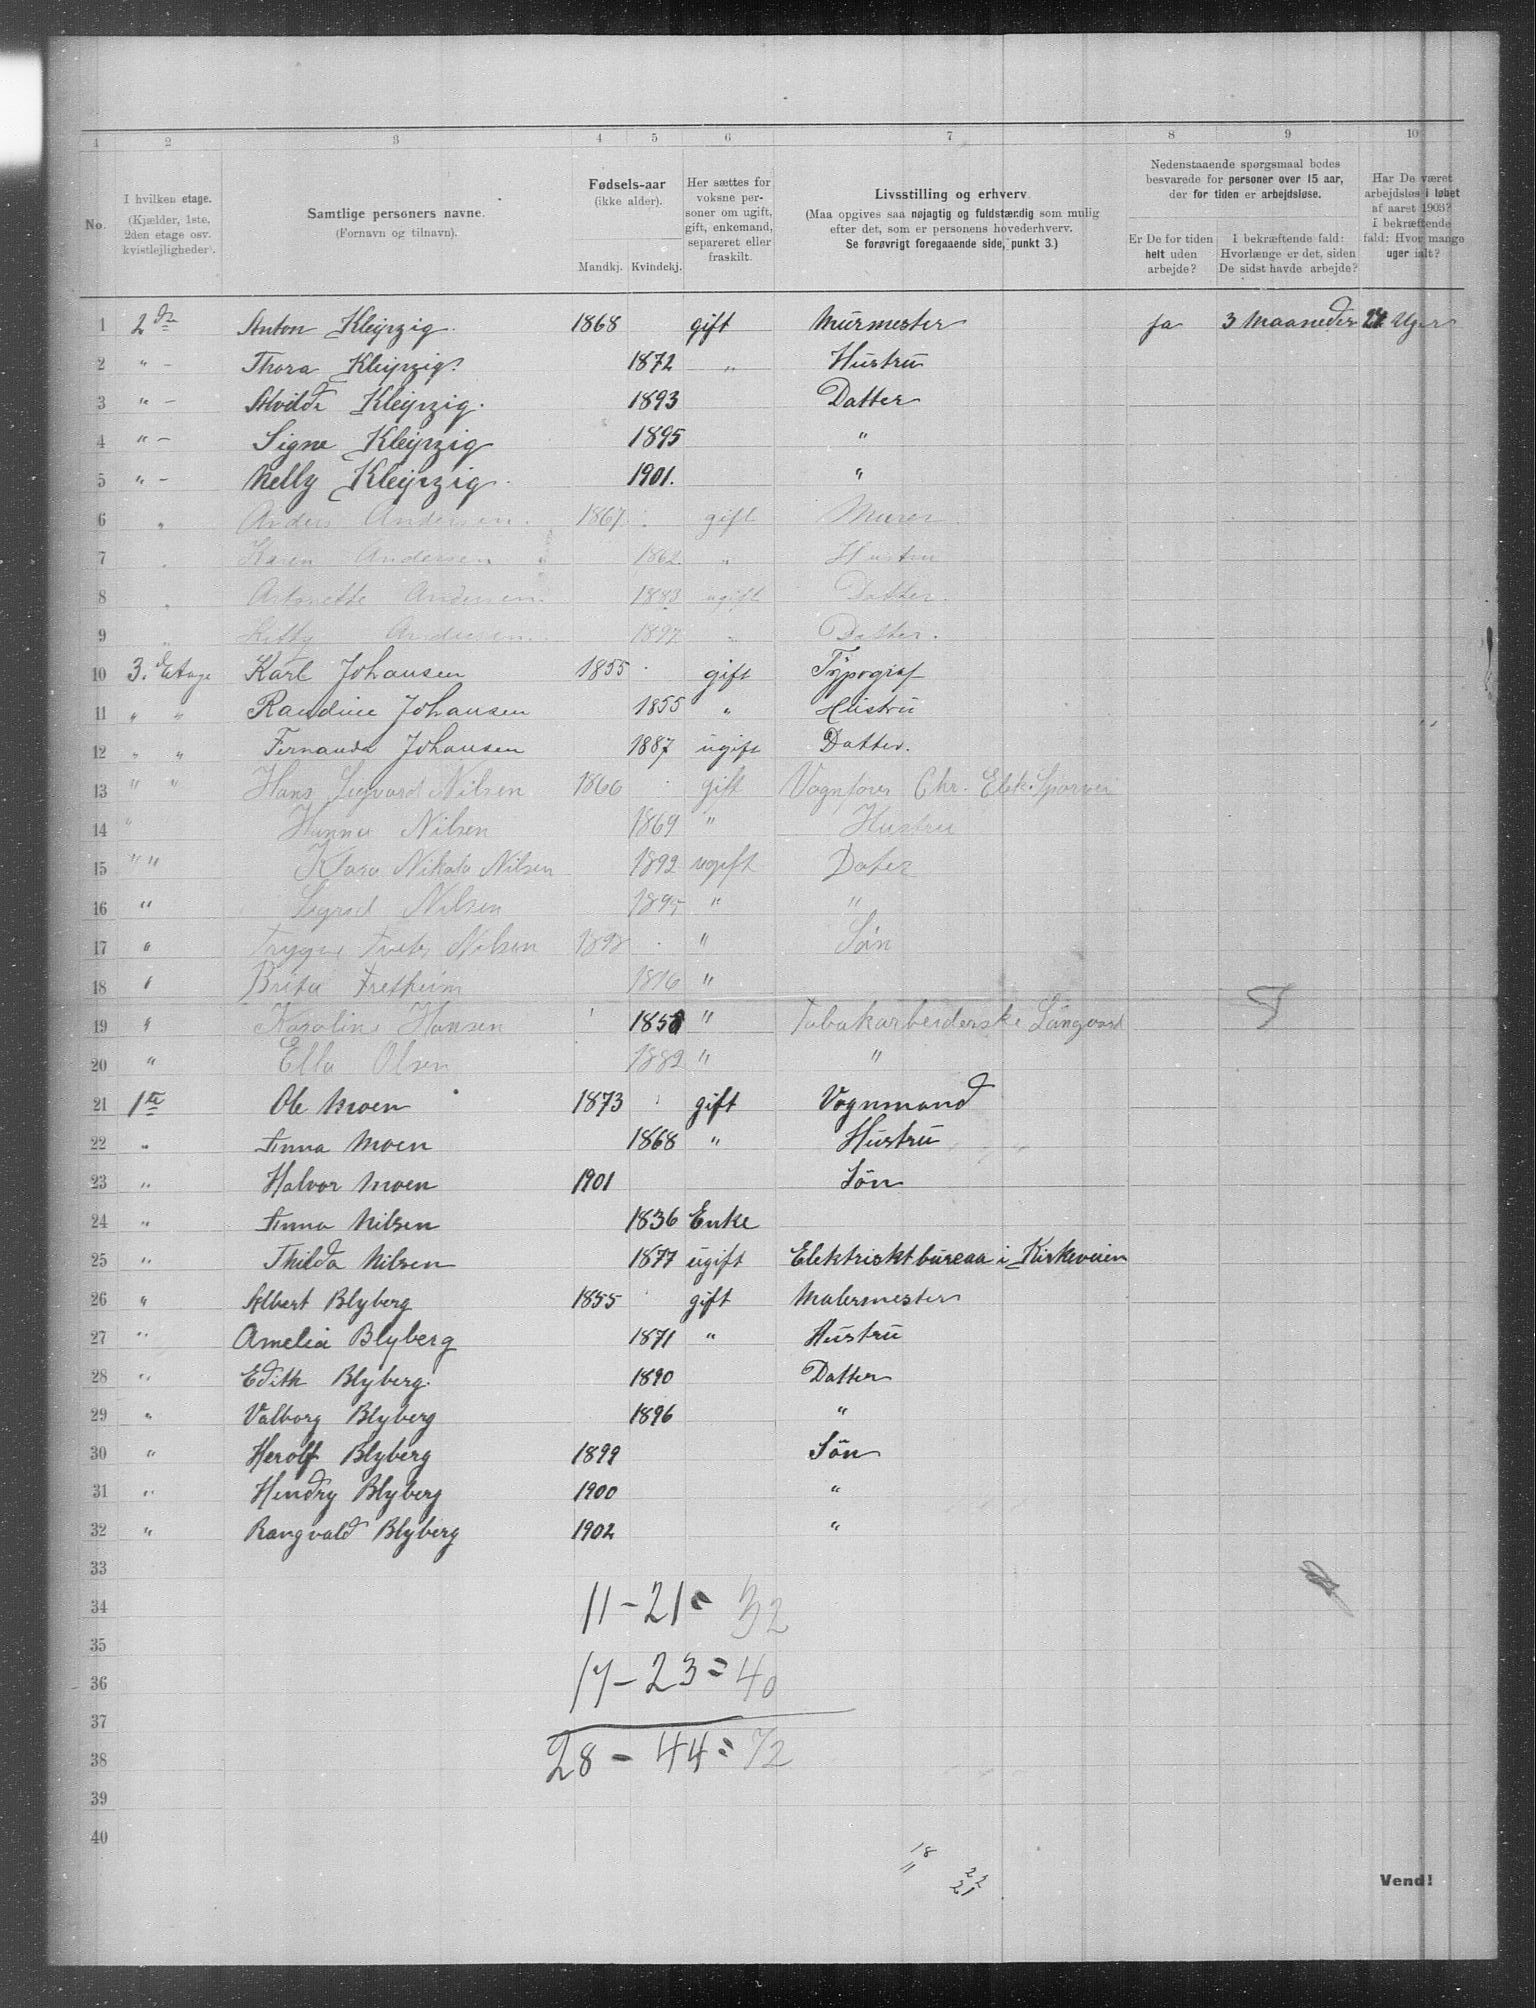 1 2 3 4 5 6 7 8 9 10
No. I hvilken etage. (Kjælder, 1ste, 2den etage osv. kvistlejligheder).
Samtlige personers navne. (Fornavn og tilnavn).
Fødsels-aar (ikke alder). Mandkj. Kvindekj.
Her sættes for voksne personer om ugift, gift, enkemand, separeret eller fraskilt.
Livsstilling og erhverv. (Maa opgives saa nøjagtig og fuldstændig som mulig efter det, som er personens hovederhverv. Se forøvrigt foregaaende side, punkt 3.)
Nedenstaaende spørgsmaal bedes besvarede for personer over 15 aar, der for tiden er arbejdsløse.
Er De for tiden helt uden arbejde?
I bekræftende fald: Hvorlænge er det, siden De sidst havde arbejde?
Har De været arbejdsløs i løbet af aaret 1903? I bekræftende fald: Hvor mange uger ialt?
1 2de Anton Kleipzig 1868 gift Murmester ja 3 Maaneder 24 Uger
2 " – Thora Kleipzig. 1872 " Hustru
3 " – Alvild Kleipzig. 1893 Datter
4 " – Signe Kleipzig 1895 "
5 " – Nelly Kleipzig. 1901. "
6 " Anders Andersen. 1867 gift Murer
7 " Karen Andersen 1862 " Hustru
8 " Antonette Andersen. 1883 ugift Datter.
9 " Andersen. 1897 " Datter.
10 3. Etage Karl Johansen 1855 gift Typograf
11 " " Randine Johansen 1855 " Hustru
12 " " Fernanda Johansen 1887 ugift Datter.
13 " " Hans Sigvard Nilsen 1866 gift Vognfører Chr. Elek. Sporvei
14 " Hanna Nilsen 1869 " Hustru
15 " " Klara Nikola Nilsen 1892 ugift Dater
16 " Sigrid Nilsen 1895 " "
17 " Trygve Nilsen 1898 " Søn
18 " Brita Fretheim 1876 "
19 " Karoline Hansen 1858 " Tobakarbeiderske Langaard
20 " Ella Olsen 1882 " "
21 1te Ole Moen 1873 gift Vognmand
22 " Anna Moen 1868 " Hustru
23 " Halvor Moen 1901 Søn
24 " Anna Nilsen 1836 Enke
25 " Thilda Nilsen 1877 ugift Elektriskt bureaa i Kirkeveien
26 " Albert Blyberg 1855 gift Malermester
27 " Amelia Blyberg 1871 " Hustru
28 " Edith Blyberg. 1890 Datter
29 " Valborg Blyberg 1896 "
30 " Herolf Blyberg 1899 Søn
31 " Hendry Blyberg 1900 "
32 " Rangvald Blyberg 1902 "
33
34 11 – 21 = 32
35
36 17 – 23 = 40
37
38 28 – 44 = 72
39
40
18 22
11 21
Vend!